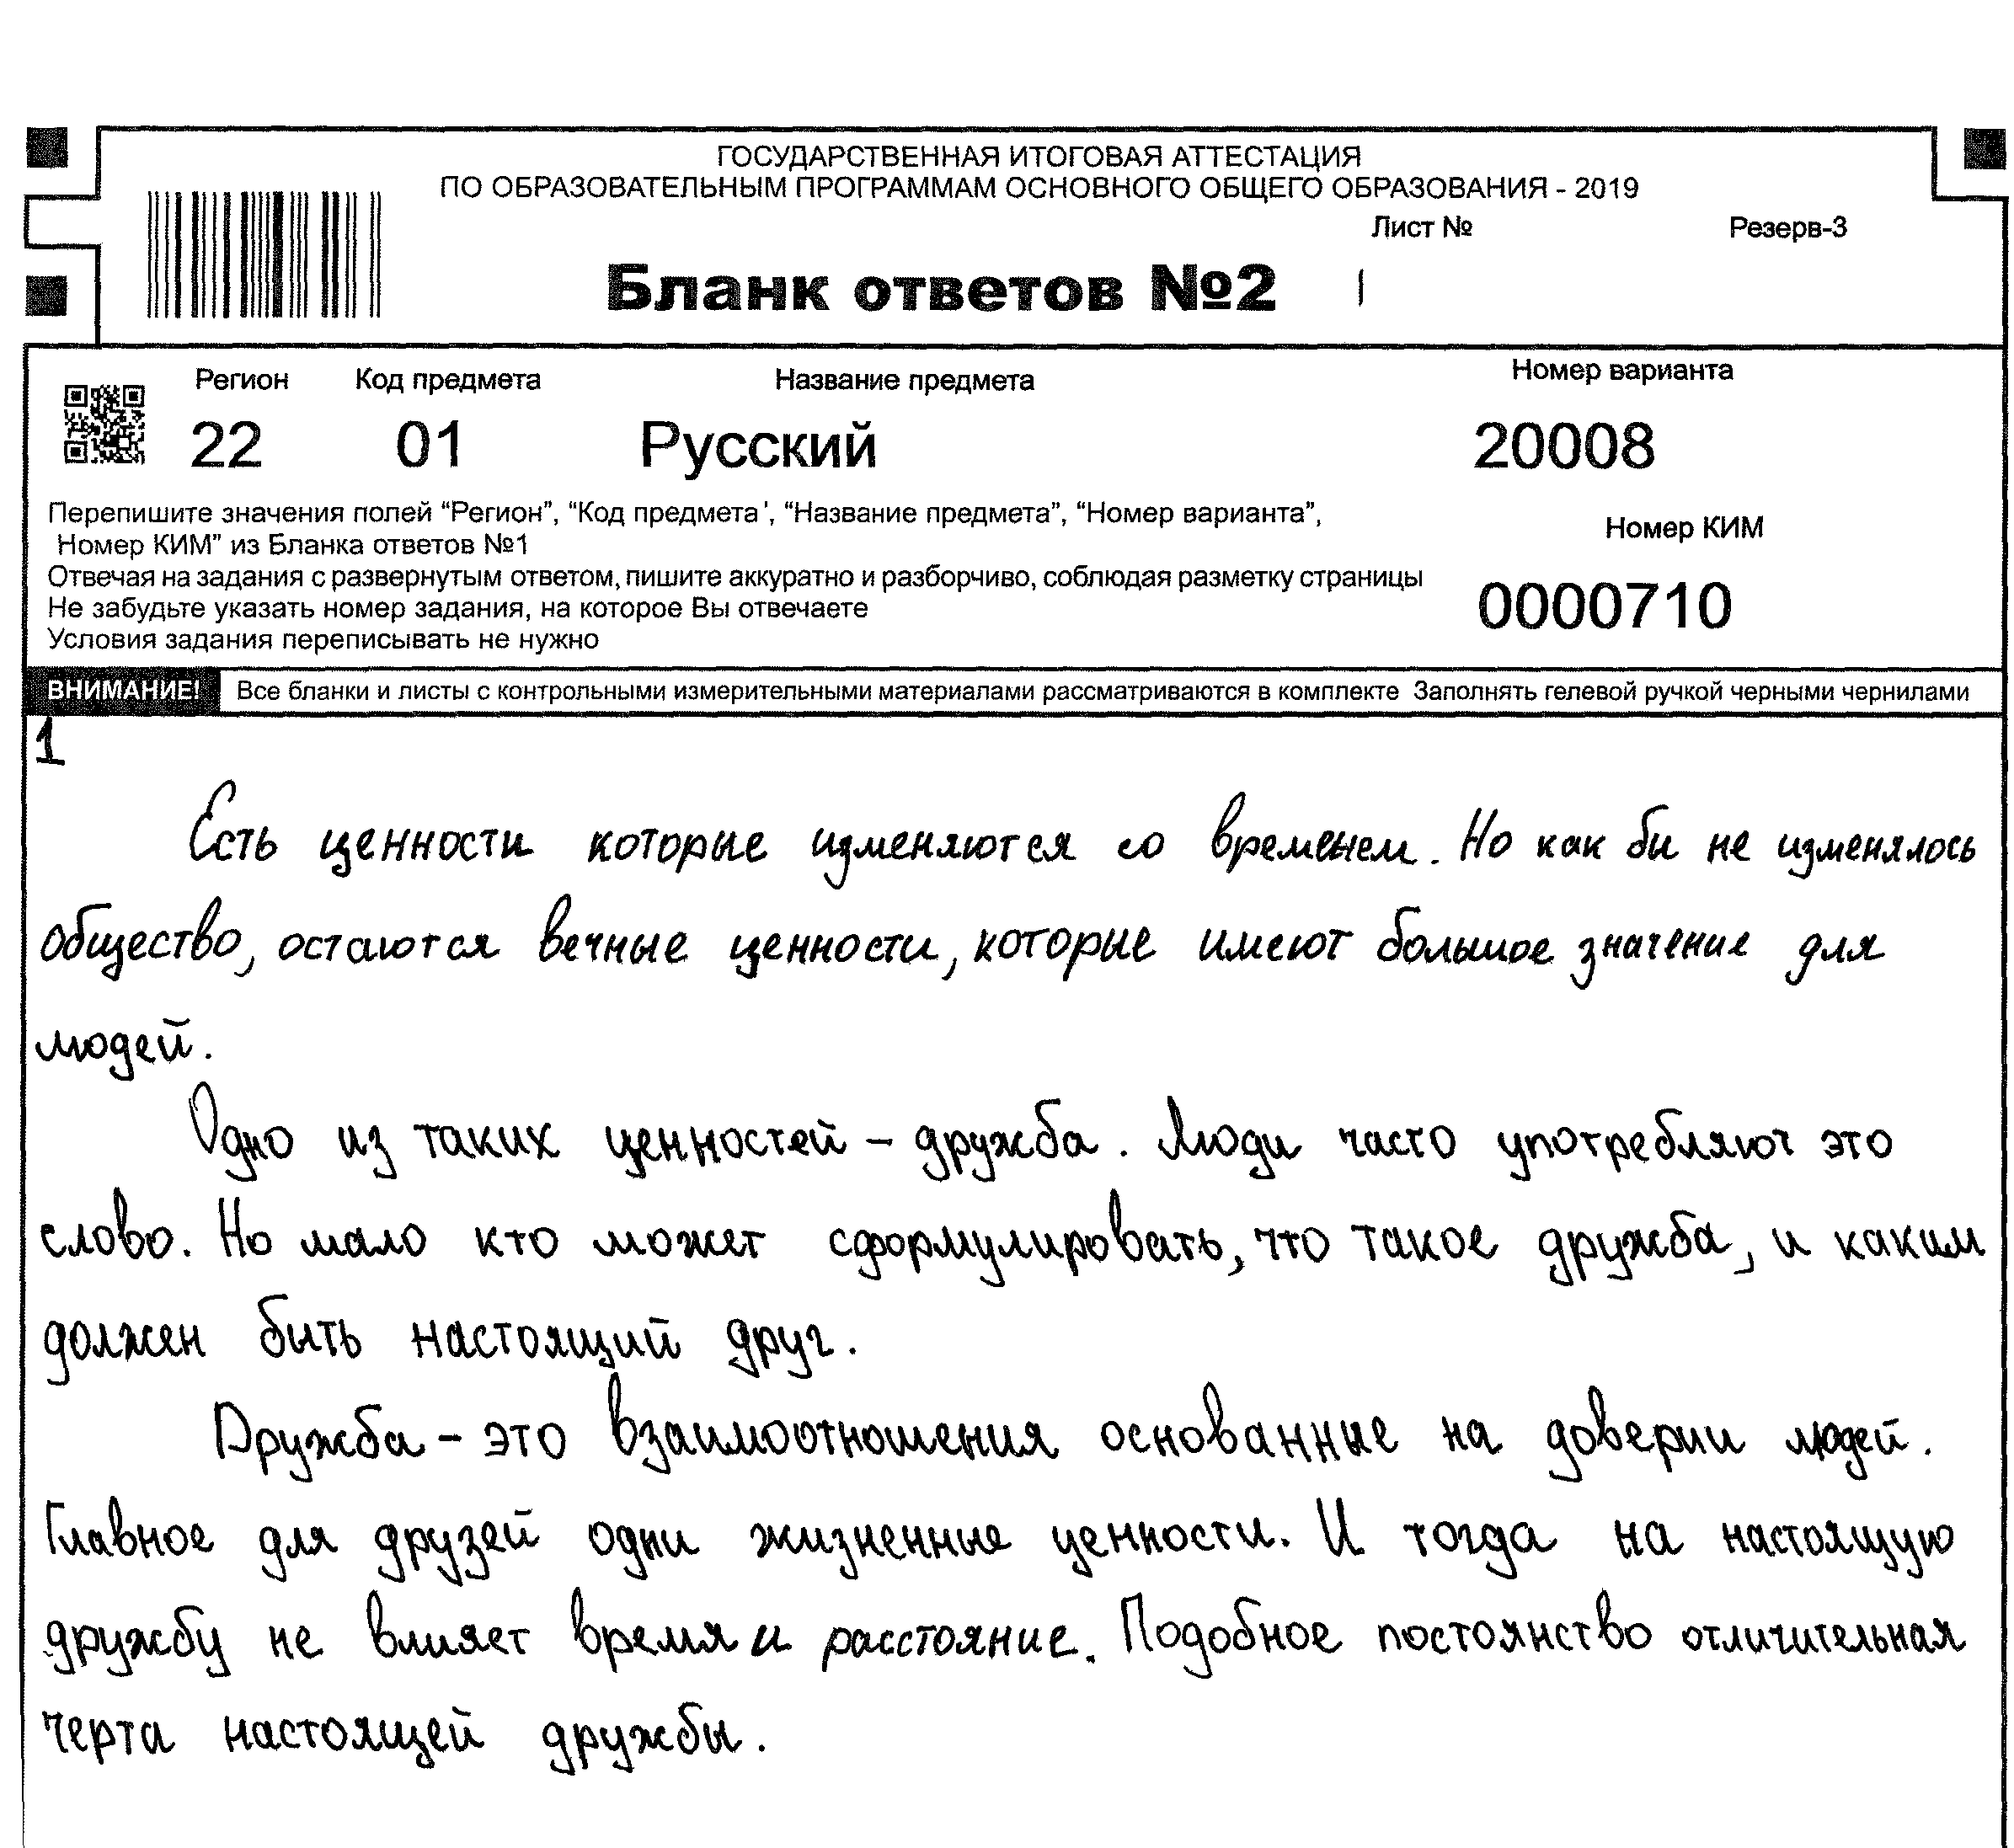 ГОСУДАРСТВЕННАЯ ИТОГОВАЯ АТТЕСТАЦИЯ
ПО ОБРАЗОВАТЕЛЬНЫМ ПРОГРАММАМ ОСНОВНОГО ОБЩЕГО ОБРАЗОВАНИЯ - 2019
Лист № Резерв-3
Бланк ответов №2 1
Регион Код предмета Название предмета Номер варианта
22 01 Русский 20008
Перепишите значения полей “Регион”, “Код предмета', “Название предмета”, “Номер варианта”,
Номер КИМ” из Бланка ответов №1
Номер КИМ
Отвечая на задания с развернутым ответом, пишите аккуратно и разборчиво, соблюдая разметку страницы
Не забудьте указать номер задания, на которое Вы отвечаете
0000710
Условия задания переписывать не нужно
ВНИМАНИЕ! Все бланки и листы с контрольными измерительными материалами рассматриваются в комплекте Заполнять гелевой ручкой черными чернилами
1
Есть ценности которые изменяются со временем. Но как бы не изменялось
общество, остаются вечные ценности, которые имеют большое значение для
людей.
Одно из таких ценностей – дружба. Люди часто употребляют это
слово. Но мало кто может сформулировать, что такое дружба, и каким
должен быть настоящий друг.
Дружба – это взаимоотношения основанные на доверии людей.
Главное для друзей одни жизненные ценности. И тогда на настоящую
дружбу не влияет время и расстояние. Подобное постоянство отличительная
черта настоящей дружбы.